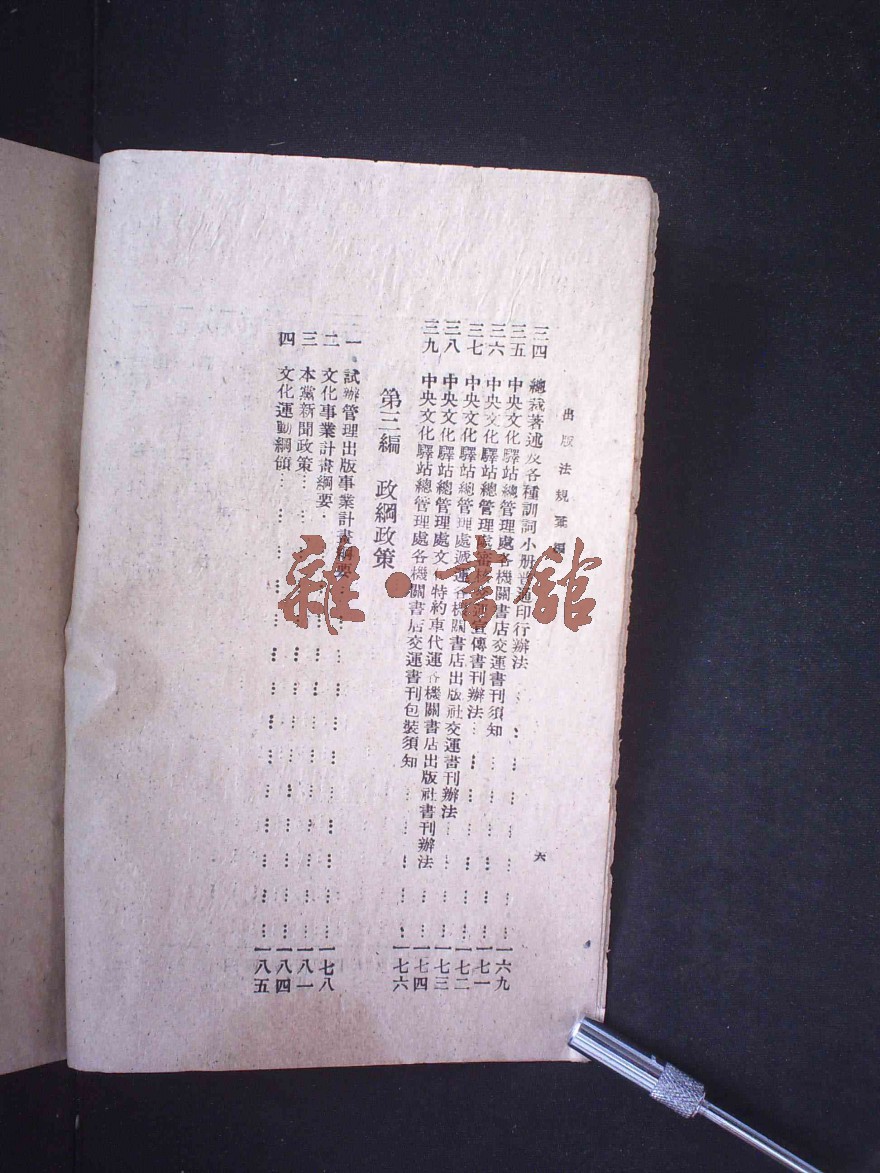 出版法規彙編 六
三四 總裁著述及各種訓詞小册普通印行辦法……一六九
三五 中央文化驛站總管理處各機關書店交運書刊須知……一七一
三六 中央文化驛站總管理處審核交運宣傳書刊辦法……一七二
三七 中央文化驛站總管理處遞運各機關書店出版社交運書刊辦法……一七三
三八 中央文化驛站總管理處文 特約車代運各機關書店出版社書刊辦法……一七四
三九 中央文化驛站總管理處各機關書店交運書刊包裝須知……一七六
第三編 政綱政策
一 試辦管理出版事業計畫綱要……一七八
二 文化事業計畫綱要……一八一
三 本黨新聞政策……一八四
四 文化運動綱領……一八五
雜·書館